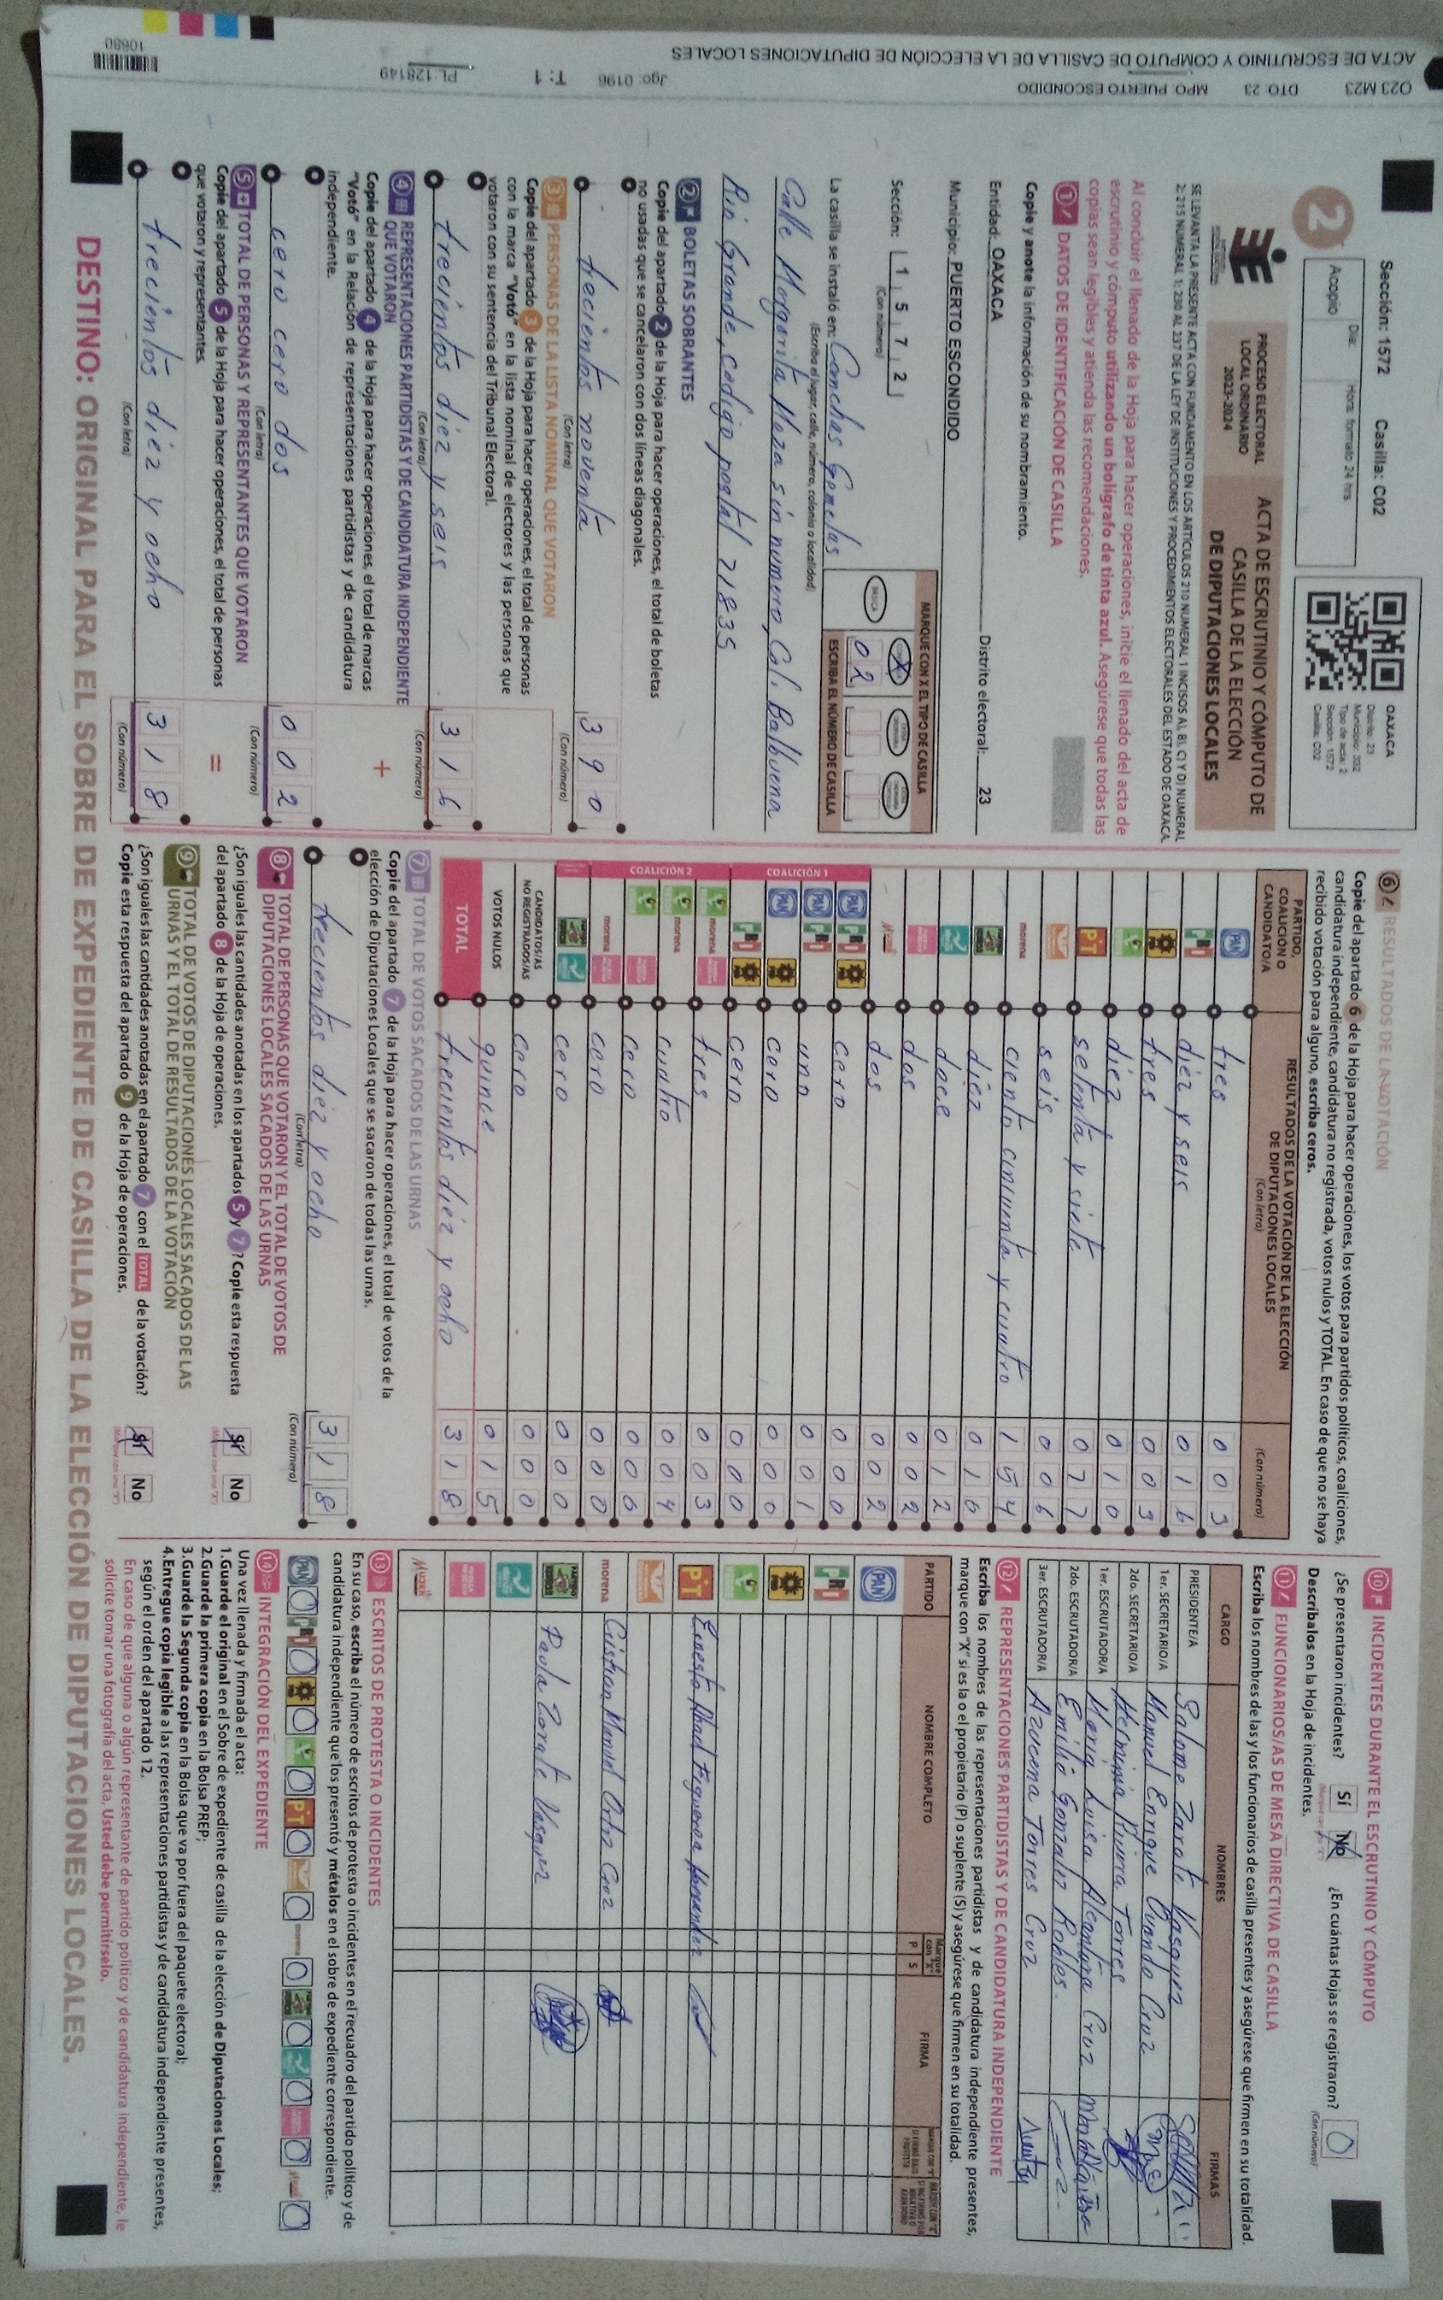 Q23 M23 DTO: 23 MPO: PUERTO ESCONDIDO Jgo: 0196 T: 1 PL:128149
ACTA DE ESCRUTINIO Y CÓMPUTO DE CASILLA DE LA ELECCIÓN DE DIPUTACIONES LOCALES
10680
Sección: 1572 Casilla: C02
2
Día: Hora: formato 24 hrs.
Acopio
OAXACA
Distrito: 23
Municipio: 332
Tipo de acta: 2
Sección: 1572
Casilla: C02
PROCESO ELECTORAL
LOCAL ORDINARIO
2023-2024
ACTA DE ESCRUTINIO Y CÓMPUTO DE
CASILLA DE LA ELECCIÓN
DE DIPUTACIONES LOCALES
SE LEVANTA LA PRESENTE ACTA CON FUNDAMENTO EN LOS ARTÍCULOS 210 NUMERAL 1 INCISOS A), B), C) Y D) NUMERAL
2; 215 NUMERAL 1; 230 AL 237 DE LA LEY DE INSTITUCIONES Y PROCEDIMIENTOS ELECTORALES DEL ESTADO DE OAXACA.
Al concluir el llenado de la Hoja para hacer operaciones, inicie el llenado del acta de
escrutinio y cómputo utilizando un bolígrafo de tinta azul. Asegúrese que todas las
copias sean legibles y atienda las recomendaciones.
1 DATOS DE IDENTIFICACIÓN DE CASILLA
Copie y anote la información de su nombramiento.
Entidad: OAXACA Distrito electoral: 23
Municipio: PUERTO ESCONDIDO
Sección: 1 5 7 2
(Con número)
MARQUE CON X EL TIPO DE CASILLA
BÁSICA
0 2
ESCRIBA EL NÚMERO DE CASILLA
La casilla se instaló en: Canchas Gemelas
(Escriba el lugar, calle, número, colonia o localidad)
Calle Margarita Maza sin numero, Col. Balbuena
Rio Grande, Codigo postal 71835
2 BOLETAS SOBRANTES
Copie del apartado 2 de la Hoja para hacer operaciones, el total de boletas
no usadas que se cancelaron con dos líneas diagonales.
trecientos noventa 3 9 0
(Con letra) (Con número)
3 PERSONAS DE LA LISTA NOMINAL QUE VOTARON
Copie del apartado 3 de la Hoja para hacer operaciones, el total de personas
con la marca "Votó" en la lista nominal de electores y las personas que
votaron con su sentencia del Tribunal Electoral.
trecientos diez y seis 3 1 6
(Con letra) (Con número)
4 REPRESENTACIONES PARTIDISTAS Y DE CANDIDATURA INDEPENDIENTE
QUE VOTARON
Copie del apartado 4 de la Hoja para hacer operaciones, el total de marcas
"Votó" en la Relación de representaciones partidistas y de candidatura
independiente.
+
cero cero dos 0 0 2
(Con letra) (Con número)
5 TOTAL DE PERSONAS Y REPRESENTANTES QUE VOTARON
Copie del apartado 5 de la Hoja para hacer operaciones, el total de personas
que votaron y representantes.
=
trecientos diez y ocho 3 1 8
(Con letra) (Con número)
6 RESULTADOS DE LA VOTACIÓN
Copie del apartado 6 de la Hoja para hacer operaciones, los votos para partidos políticos, coaliciones,
candidatura independiente, candidatura no registrada, votos nulos y TOTAL. En caso de que no se haya
recibido votación para alguno, escriba ceros.
PARTIDO,
COALICIÓN O
CANDIDATO/A
RESULTADOS DE LA VOTACIÓN DE LA ELECCIÓN
DE DIPUTACIONES LOCALES
(Con letra) (Con número)
PAN tres 0 0 3
PRI diez y seis 0 1 6
tres 0 0 3
diez 0 1 0
PT setenta y siete 0 7 7
seis 0 0 6
morena ciento cincuenta y cuatro 1 5 4
diez 0 1 0
doce 0 1 2
dos 0 0 2
dos 0 0 2
COALICIÓN 1
PAN PRI cero 0 0 0
PAN PRI uno 0 0 1
PAN cero 0 0 0
PRI cero 0 0 0
COALICIÓN 2
morena tres 0 0 3
morena cuatro 0 0 4
cero 0 0 0
morena cero 0 0 0
cero 0 0 0
CANDIDATOS/AS
NO REGISTRADOS/AS cero 0 0 0
VOTOS NULOS quince 0 1 5
TOTAL trecientos diez y ocho 3 1 8
7 TOTAL DE VOTOS SACADOS DE LAS URNAS
Copie del apartado 7 de la Hoja para hacer operaciones, el total de votos de la
elección de Diputaciones Locales que se sacaron de todas las urnas.
trecientos diez y ocho 3 1 8
(Con letra) (Con número)
8 TOTAL DE PERSONAS QUE VOTARON Y EL TOTAL DE VOTOS DE
DIPUTACIONES LOCALES SACADOS DE LAS URNAS
¿Son iguales las cantidades anotadas en los apartados 5 y 7? Copie esta respuesta
del apartado 8 de la Hoja de operaciones.
Sí No
9 TOTAL DE VOTOS DE DIPUTACIONES LOCALES SACADOS DE LAS
URNAS Y EL TOTAL DE RESULTADOS DE LA VOTACIÓN
¿Son iguales las cantidades anotadas en el apartado 7 con el TOTAL de la votación?
Copie esta respuesta del apartado 9 de la Hoja de operaciones.
Sí No
10 INCIDENTES DURANTE EL ESCRUTINIO Y CÓMPUTO
¿Se presentaron incidentes? Sí No ¿En cuántas Hojas se registraron? 0
(Con número)
Descríbalos en la Hoja de incidentes.
11 FUNCIONARIOS/AS DE MESA DIRECTIVA DE CASILLA
Escriba los nombres de las y los funcionarios de casilla presentes y asegúrese que firmen en su totalidad.
CARGO NOMBRES FIRMAS
PRESIDENTE/A Salome Zarate Vasquez
1er. SECRETARIO/A Manuel Enrique Ovando Cruz
2do. SECRETARIO/A Herminia Ruirra Torres
1er. ESCRUTADOR/A Maria Luisa Alcantara Cruz
2do. ESCRUTADOR/A Emilio Gonzalez Robles.
3er. ESCRUTADOR/A Azucena Torres Cruz
12 REPRESENTACIONES PARTIDISTAS Y DE CANDIDATURA INDEPENDIENTE
Escriba los nombres de las representaciones partidistas y de candidatura independiente presentes,
marque con "X" si es la o el propietario (P) o suplente (S) y asegúrese que firmen en su totalidad.
PARTIDO NOMBRE COMPLETO Marque con "X" P S FIRMA
PAN
PRI
PT Ernesto Abad Figueroa Hernandez
morena Cristian Manuel Ortiz Gez
Paola Zarate Vasquez
13 ESCRITOS DE PROTESTA O INCIDENTES
En su caso, escriba el número de escritos de protesta o incidentes en el recuadro del partido político y de
candidatura independiente que los presentó y métalos en el sobre de expediente correspondiente.
PAN 0 PRI 0 0 0 PT 0 0 morena 0 0 0 0 0
14 INTEGRACIÓN DEL EXPEDIENTE
Una vez llenada y firmada el acta:
1.Guarde el original en el Sobre de expediente de casilla de la elección de Diputaciones Locales;
2.Guarde la primera copia en la Bolsa PREP;
3.Guarde la Segunda copia en la Bolsa que va por fuera del paquete electoral;
4.Entregue copia legible a las representaciones partidistas y de candidatura independiente presentes,
según el orden del apartado 12.
En caso de que alguna o algún representante de partido político y de candidatura independiente, le
solicite tomar una fotografía del acta, Usted debe permitírselo.
DESTINO: ORIGINAL PARA EL SOBRE DE EXPEDIENTE DE CASILLA DE LA ELECCIÓN DE DIPUTACIONES LOCALES.